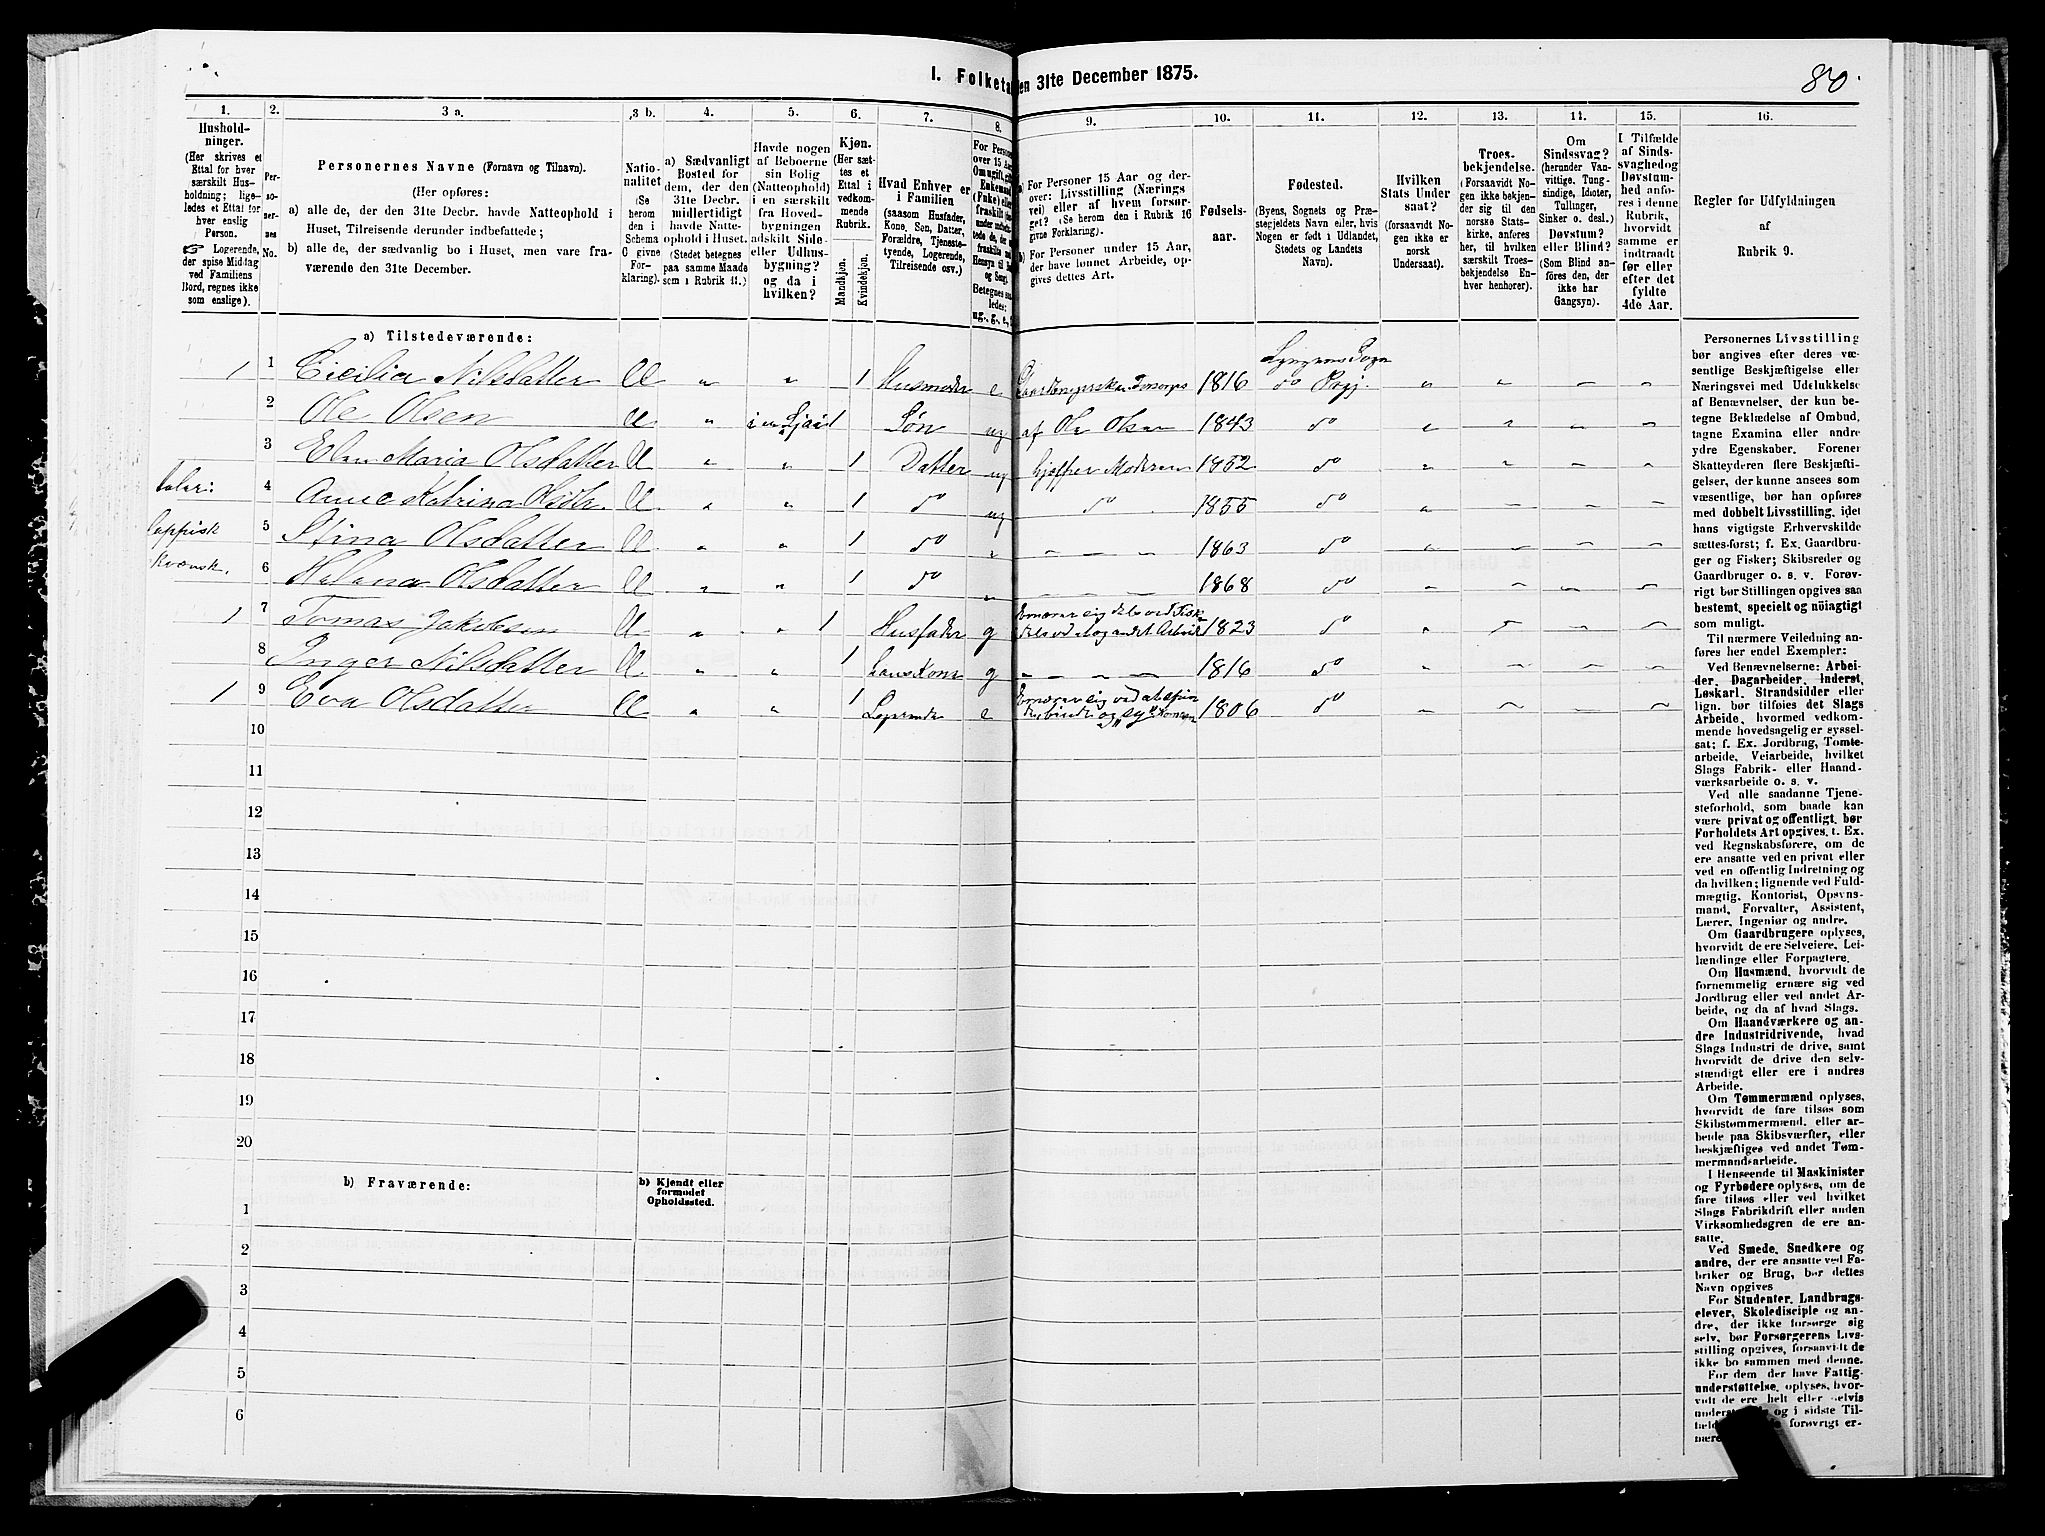 I. Folketa
en 31te December 1875.
80.
1.
2.
3 a.
3 b.
4.
5.
6.
7.
8.
9.
10.
11.
12.
13.
14.
15.
16.
Hushold-
ninger.
(Her skrives et
Ettal for hver
særskilt Hus-
holdning; lige-
ledes et Ettal for
hver enslig
Person.
☞ Logerende,
der spise Middag
ved Familiens
Bord, regnes ikke
som enslige).
Per-
so-
ner-
nes
No.
Personernes Navne (Fornavn og Tilnavn).
(Her opføres:
a) alle de, der den 31te Decbr. havde Natteophold i
Huset, Tilreisende derunder indbefattede;
b) alle de, der sædvanlig bo i Huset, men vare fra-
værende den 31te December.
Natio-
nalitet
(Se
herom
den i
Schema
C givne
For-
klaring).
a) Sædvanligt
Bosted for
dem, der den
31te Decbr.
midlertidigt
havde Natte-
ophold i Huset.
(Stedet betegnes
paa samme Maade
som i Rubrik 11.)
Havde nogen
af Beboerne
sin Bolig
(Natteophold)
i en særskilt
fra Hoved-
bygningen
adskilt Side-
eller Udhus-
bygning?
og da i
hvilken?
Kjøn.
(Her sæt-
tes et
Ettal i
vedkom-
mende
Rubrik.
Mandkjøn.
Kvindekjøn.
Hvad Enhver er
i Familien
(saasom Husfader,
Kone, Søn, Datter,
Forældre, Tjeneste-
tyende, Logerende,
Tilreisende osv.)
For Persone
over 15 Aar
Om ugift, gift
Enkemand
(Enke) eller
fraskilt
Betegnes saa-
ledes:
ug., g., e.,
a) For Personer 15 Aar og der-
over: Livsstilling (Nærings
vei) eller af hvem forsør-
get? (Se herom den i Rubrik 16
givne Forklaring).
b) For Personer under 15 Aar,
der have lønnet Arbeide, op-
gives dettes Art.
Fødsels-
aar.
Fødested.
(Byens, Sognets og Præ-
stegjeldets Navn eller, hvis
Nogen er født i Udlandet,
Stedets og Landets
Navn).
Hvilken
Stats Under
saat?
(forsaavidt No-
gen ikke er
norsk
Undersaat).
Troes-
bekjendelse.
(Forsaavidt No-
gen ikke bekjen-
der sig til den
norske Stats-
kirke, anføres
her, til hvilken
særskilt Troes-
bekjendelse En-
hver henhorer).
Om
Sindssvag?
(herunder Van-
vittige, Tung-
sindige, Idioter,
Tullinger,
Sinker o. desl.)
Døvstum?
eller Blind?
(Som Blind an-
føres den, der
ikke har
Gangsyn).
I Tilfælde
af Sinds-
svaghed og
Døvstum-
hed anfø-
res i denne
Rubrik,
hvorvidt
samme er
indtraadt
før eller
efter det
fyldte
4de Aar.
Regler for Udfyldningen
af
Rubrik 9.
a) Tilstedeværende:
1 1 Cicilia Nilsdatter U „ „ 1 Husmoder e 1816 Lyngens Sogn do Prgj.
2 Ole Olsen U „ 1 Søn ug af Ole Olsen 1843 do
3 Elen Maria Olsdatter U „ „ 1 Datter ug hjælper Moderen 1852 do
taler:
4 Anne Katrina Olsdtr. U „ „ 1 do ug do 1855 do
lappisk
5 Stina Olsdatter U „ „ 1 do „ 1863 do
kvænsk.
6 Helena Olsdatter U „ „ 1 do „ 1868 do
1 7 Tomas Jakobsen U „ „ 1 Husfader g Ernærer sig dels ved Fisk dels ved andet Arbeide 1823 do
8 Inger Nilsdatter U „ „ 1 hans Kone g 1816 do
1 9 Eva Olsdatter U „ „ 1 e Ernærer sig ved at spin 1806 do
10
11
12
13
14
15
16
17
18
19
20
b) Fraværende:
b) Kjendt eller
formodet
Opholdssted.
1
2
3
4
5
6
Personernes Livsstilling
bør angives efter deres væ-
sentlige Beskjæftigelse eller
Næringsvei med Udelukkelse
af Benævnelser, der kun be-
tegne Beklædelse af Ombud,
tagne Examina eller andre
ydre Egenskaber. Forener
Skatteyderen flere Beskjæfti-
gelser, der kunne ansees som
væsentlige, bør han opføres
med dobbelt Livsstilling, idet
hans vigtigste Erhvervskilde
sættes først; f. Ex. Gaardbru-
ger og Fisker; Skibsreder og
Gaardbruger o. s. v. Forøv-
rigt bør Stillingen opgives saa
bestemt, specielt og nöiagtigt
som muligt.
Til nærmere Veiledning an-
føres her endel Exempler:
Ved Benævnelserne: Arbei-
der, Dagarbeider, Inderst,
Løskarl, Strandsidder eller
lign. bør tilføies det Slags
Arbeide, hvormed vedkom-
mende hovedsagelig er syssel-
sat; f. Ex. Jordbrug, Tomte-
arbeide, Veiarbeide, hvilket
Slags Fabrik- eller Haand-
værksarbeide o. s. v.
Ved alle saadanne Tjene-
steforhold, som baade kan
være privat og offentligt, bør
Forholdets Art opgives, t. Ex.
ved Regnskabsførere, om de
ere ansatte ved en privat eller
ved en offentlig Indretning og
da hvilken; lignende ved Fuld-
mægtig, Kontorist, Opsyns-
mand, Forvalter, Assistent,
Lærer, Ingeniør og andre.
Om Gaardbrugere oplyses,
hvorvidt de ere Selveiere, Lei-
lændinge eller Forpagtere.
Om Husmænd, hvorvidt de
fornemmelig ernære sig ved
Jordbrug eller ved andet Ar-
beide, og da af hvad Slags.
Om Haandværkere og an-
dre Industridrivende, hvad
Slags Industri de drive, samt
hvorvidt de drive den selv-
stændigt eller ere i andres
Arbeide.
Om Tømmermænd oplyses,
hvorvidt de fare tilsøs som
Skibstømmermænd, eller ar-
beide paa Skibsværfter, eller
beskjæftiges ved andet Tøm-
mermandsarbeide.
I Henseende til Maskinister
og Fyrbødere oplyses, om de
fare tilsøs eller ved hvilket
Slags Fabrikdrift eller anden
Virksomhedsgren de ere an-
satte.
Ved Smede, Snedkere og
andre, der ere ansatte ved Fa-
briker og Brug, bør dettes
Navn opgives
For Studenter, Landbrugs-
elever, Skoledisciple og an-
dre, der ikke forsørge sig
selv, bør Forsørgerens Livs-
stilling opgives, forsaavidt de
ikke bo sammen med denne.
For dem, der have Fattig-
understøttelse, oplyses, hvor-
vidt de ere helt eller delvis
og i sidste Til-
forøvrigt er-
nære